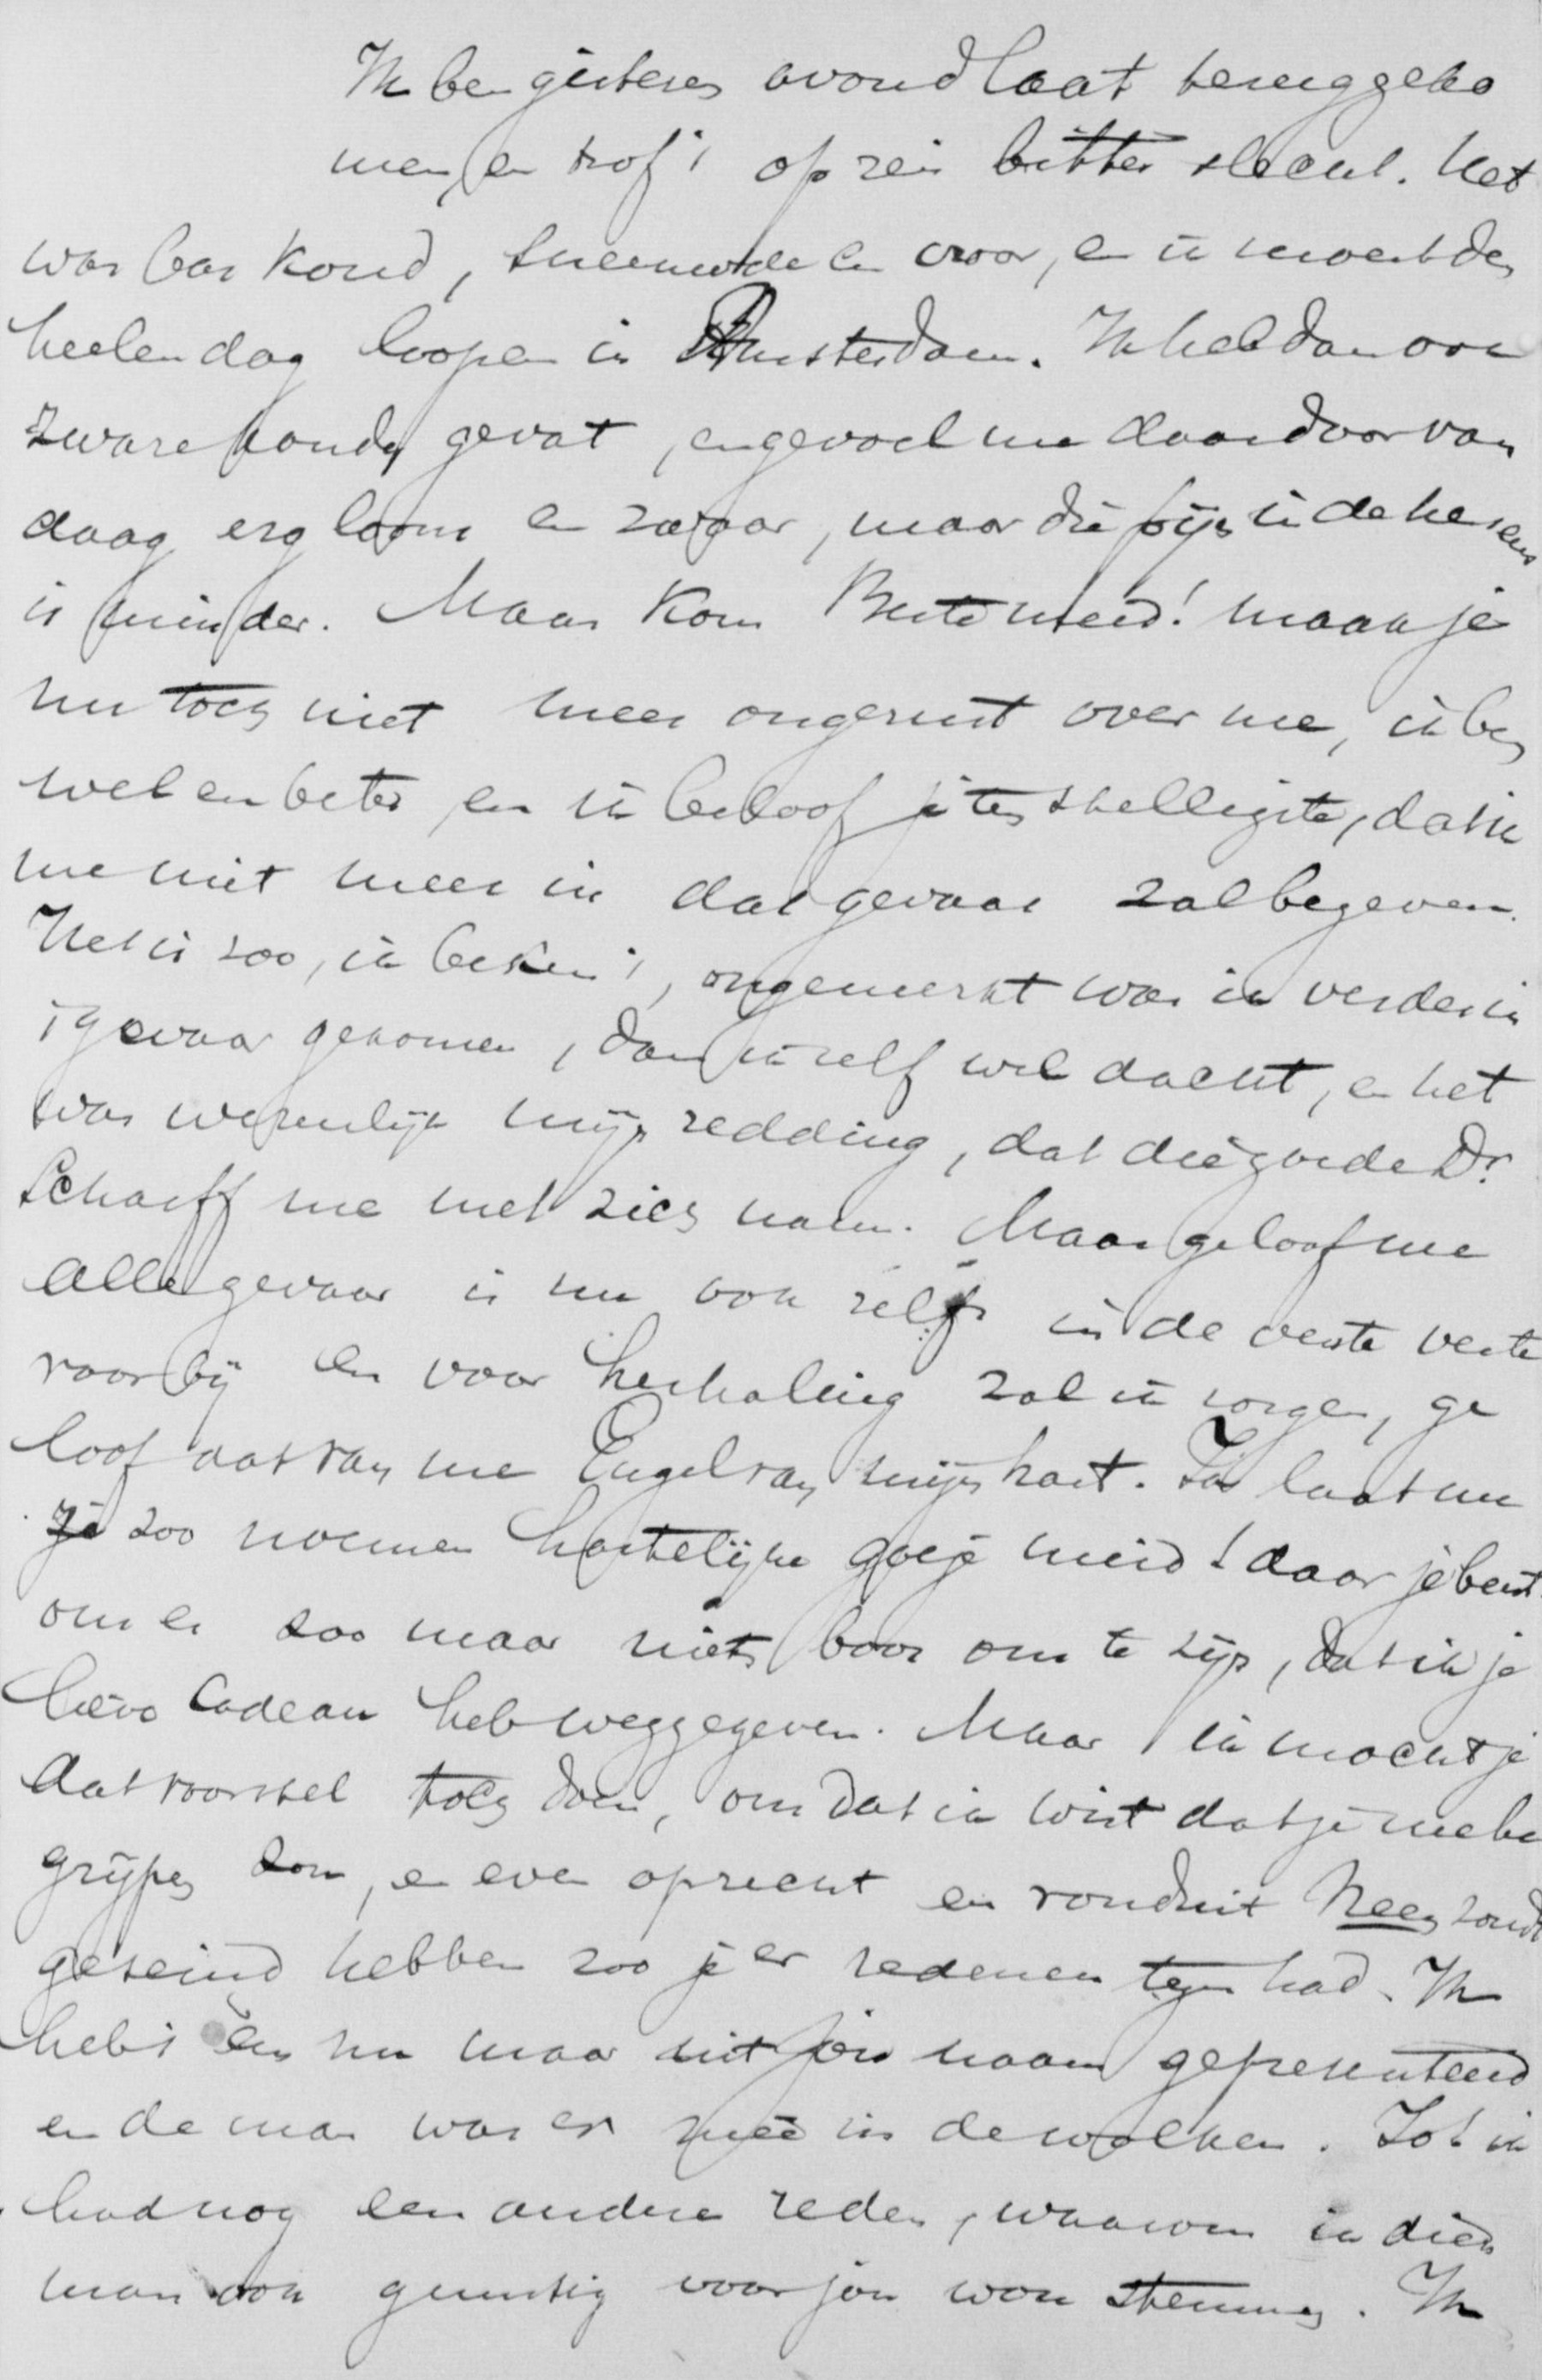 Ik ben gisteren avond laat teruggeko
men, en trof 't op reis bitter slecht. Het
was bar koud, sneeuwde en vroor, en ik moest den
heelen dag loopen in Amsterdam. Ik heb dan ook
zware koude gevat, en gevoel me daardoor van
daag erg loom en zwaar, maar die pijn in de hersens
is minder. Maar kom Beste meid! maak je
nu toch niet meer ongerust over me, ik ben
wel en beter, en ik beloof je ten stelligste, dat ik
me niet meer in dat gevaar zal begeven.
Het is zoo, ik beken 't, ongemerkt was ik verder in
't gevaar gekomen, dan ik zelf wel dacht, en het
was werkelijk mijn redding, dat die goede Dr.
Scharff me met zich nam. Maar geloof me
alle gevaar is nu ook zelfs in de verste verte
voorbij en voor herhaling zal ik zorgen, ge
loof dat van me Engel van mijn hart. Ja laat me
je zoo noemen hartelijke goeje meid! daar je bent
om er zoo maar niets boos om te zijn, dat ik je
lieve Cadeau heb weggegeven. Maar ik mocht je
dat voorstel toch doen, omdat ik wist dat je me be
grijpen zou, en even oprecht en ronduit Neen zoudt
geseind hebben zoo je er redenen tegen had. Ik
heb 't en nu maar uit jou naam gepresenteerd
en de man was er mee in de wolken. Zot ik
had nog een andere reden, waarom ik dien
man ook gunstig voor jou wou stemmen. Ik